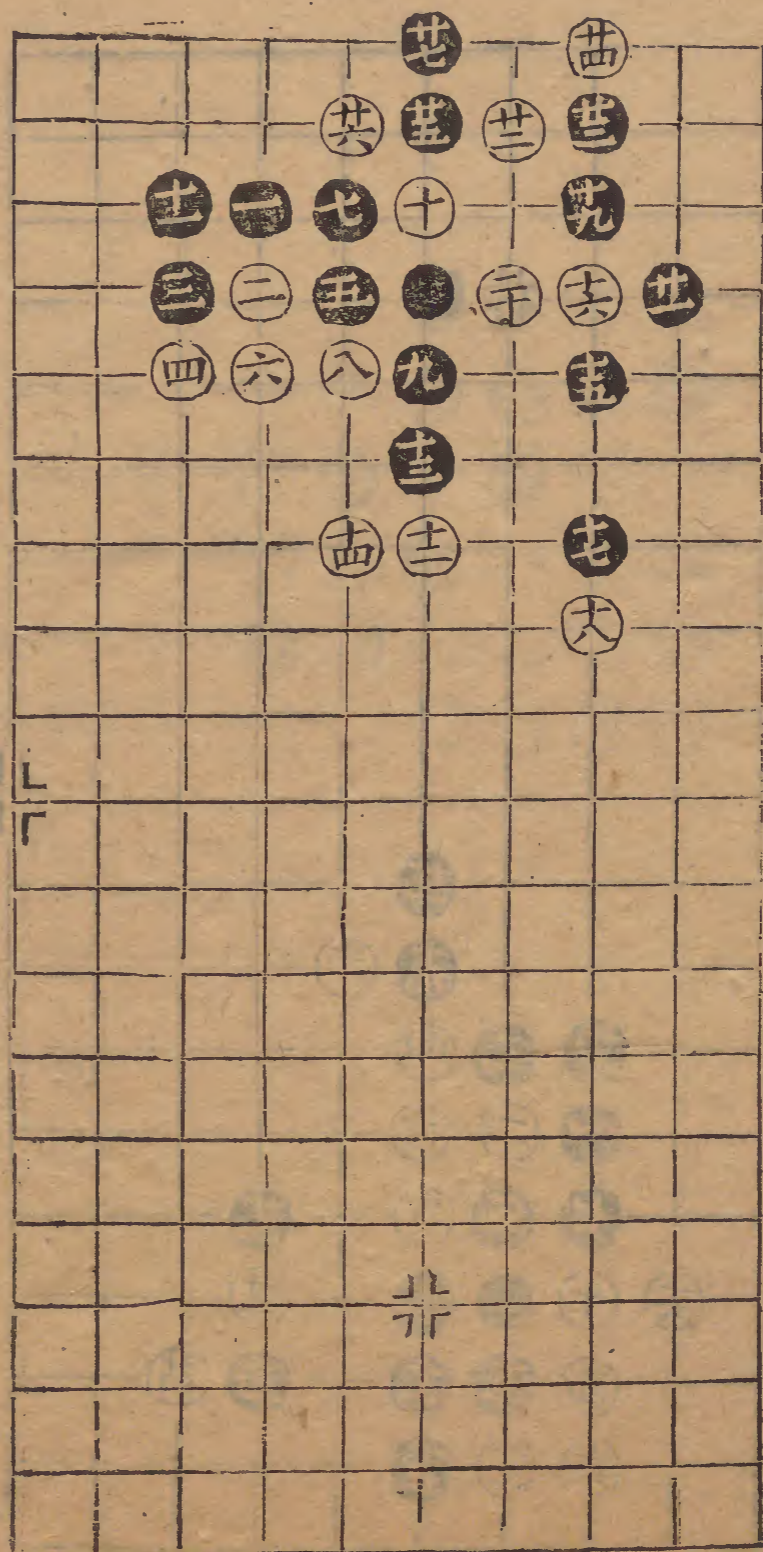 廿七 廿四
廿六 廿五 廿二 廿三
十一 一 七 十 十九
三 二 五 二十 十六 廿一
四 六 八 九 十五
十三
十四 十二 十七
十八